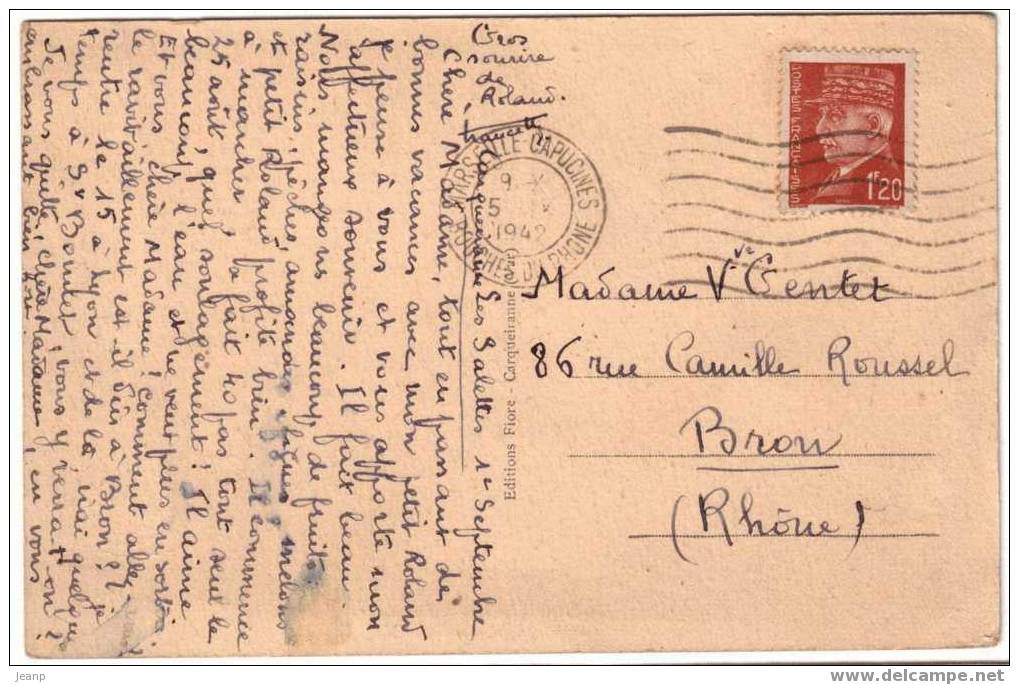 Carqueiranne Les Salettes 1er Septembre
Chère Madame, tout en passant de
bonnes vacances avec mon petit Roland
je pense à vous et vous apporte mon
affectueux souvenir. Il fait beau
Nous mangeons beaucoup de fruits
raisins, pêches, amandes figues melons
et petit Roland profite bien. Il commence
à marcher
a fait 4 pas tout seul le
25 août, quel soulagement! Il aime
beaucoup l'eau et ne veut plus en sortir
Et vous chère Madame? comment allez
le ravitaillement est-il sûr à Bron?? je
rentre le 15 à Lyon et de là irai quelque
temps à St Bonnet, vous y verra-t-on?
Je vous quitte, chère Madame, en vous
embrassant bien fort.
Francette
Gros
sourire
de
Roland.
POSTES FRANÇAISES
1F20
MARSEILLE CAPUCINES
9 - X
5 IX
1942
BOUCHES DU RHONE
Editions Fiore - Carqueiranne (Var)
Madame Vve Gentet
86 rue Camille Roussel
Bron
(Rhône)
jeanp
www.delcampe.net